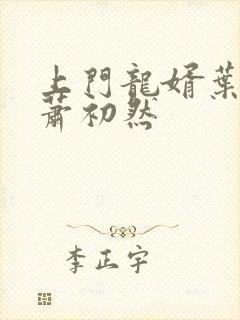 上門龍婿葉
蕭初然
李正宇